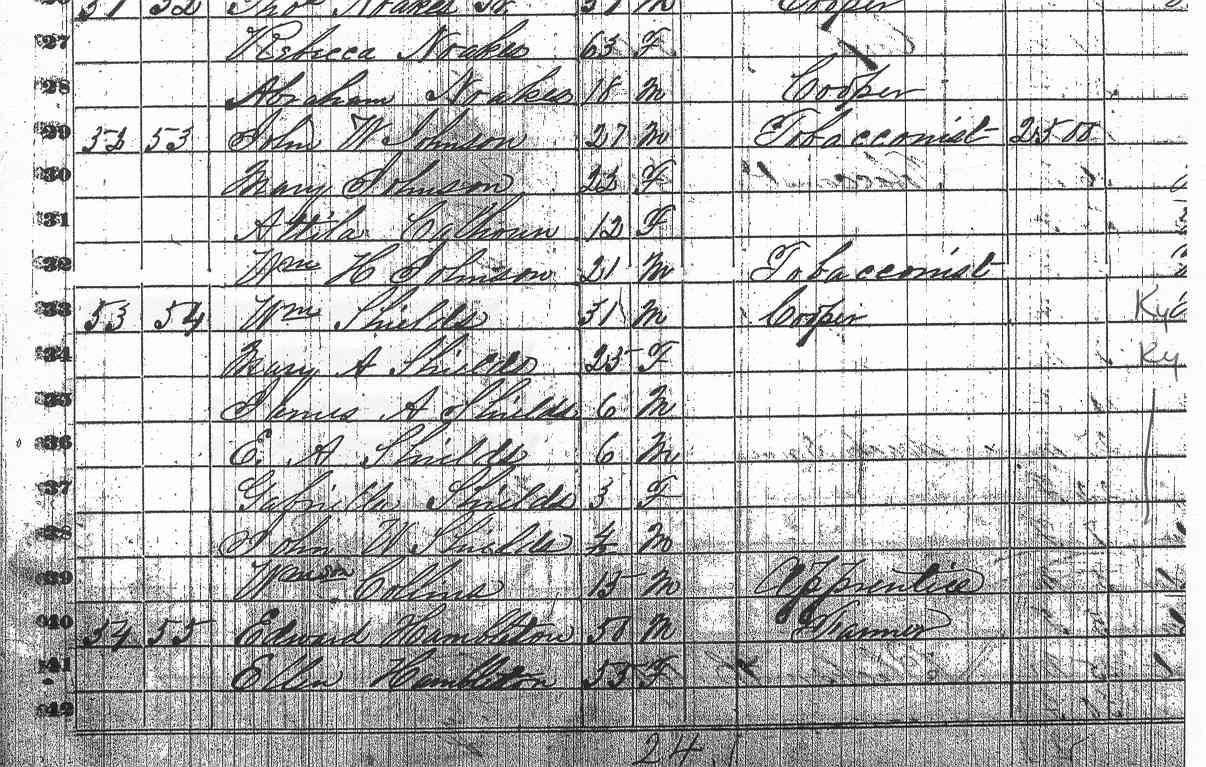 51 52 Thos Noakes 51 M Cooper
27 Rebecca Noakes 63 F
28 Abraham Noakes 18 M Cooper
29 52 53 John W Johnson 27 M Tobacconist 2500
30 Mary Johnson 22 F
31 Attila Calhoun 12 F
32 Wm H Johnson 21 M Tobacconist
33 53 54 Wm Shields 31 M Cooper Ky
34 Mary A Shields 25 F Ky
35 James A Shields 6 M
36 E. A Shields 6 M
37 Gabriella Shields 3 F
38 John W Shields M
39 Colins 15 M Apprentise
40 54 55 Edward Hambleton M
41 Ellen Hambleton F
42
24